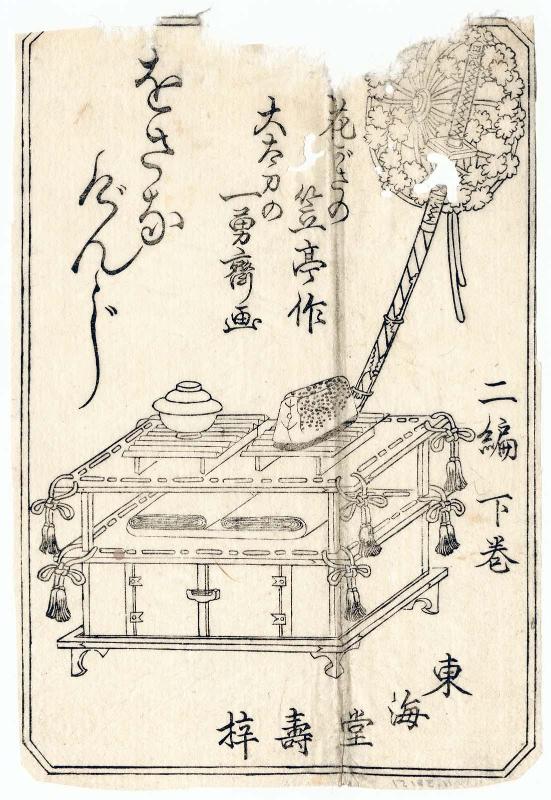 二編 下巻
花がさの
笠亭作
大太刀の
一勇齋画
をさな
げんじ
東海堂
壽梓